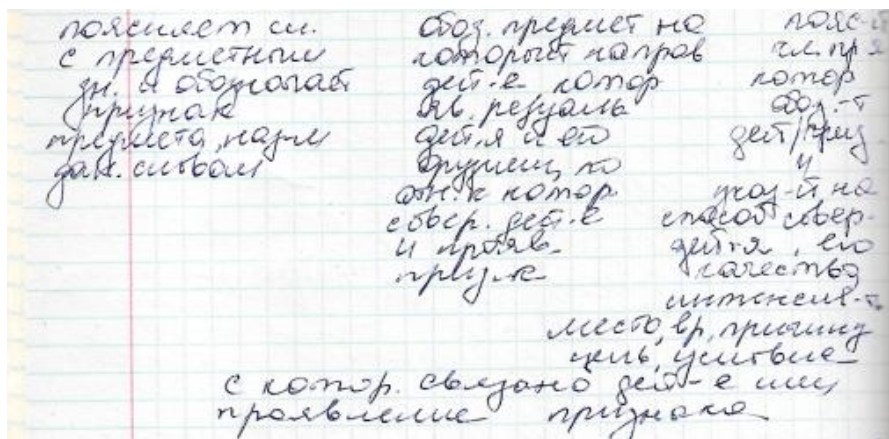 поясняет сл.
с предметным
зн. и обозначает
признак
предмета, назм
дан. словом
обоз. предмет на
который направ
дей-е котор
яв. результ
дей.я и его
орудием, по
отн. к котор
совер. дей-е
и прояв.
призн-к
пояс-й
гл. пр я
котор
обоз.-т
дей/приз
и
указ-й на
способ совер-
дей-я, его
качество
интенсив-т.
место, вр, причину
цель, условие
с котор. связано дей-е или
проявление признака